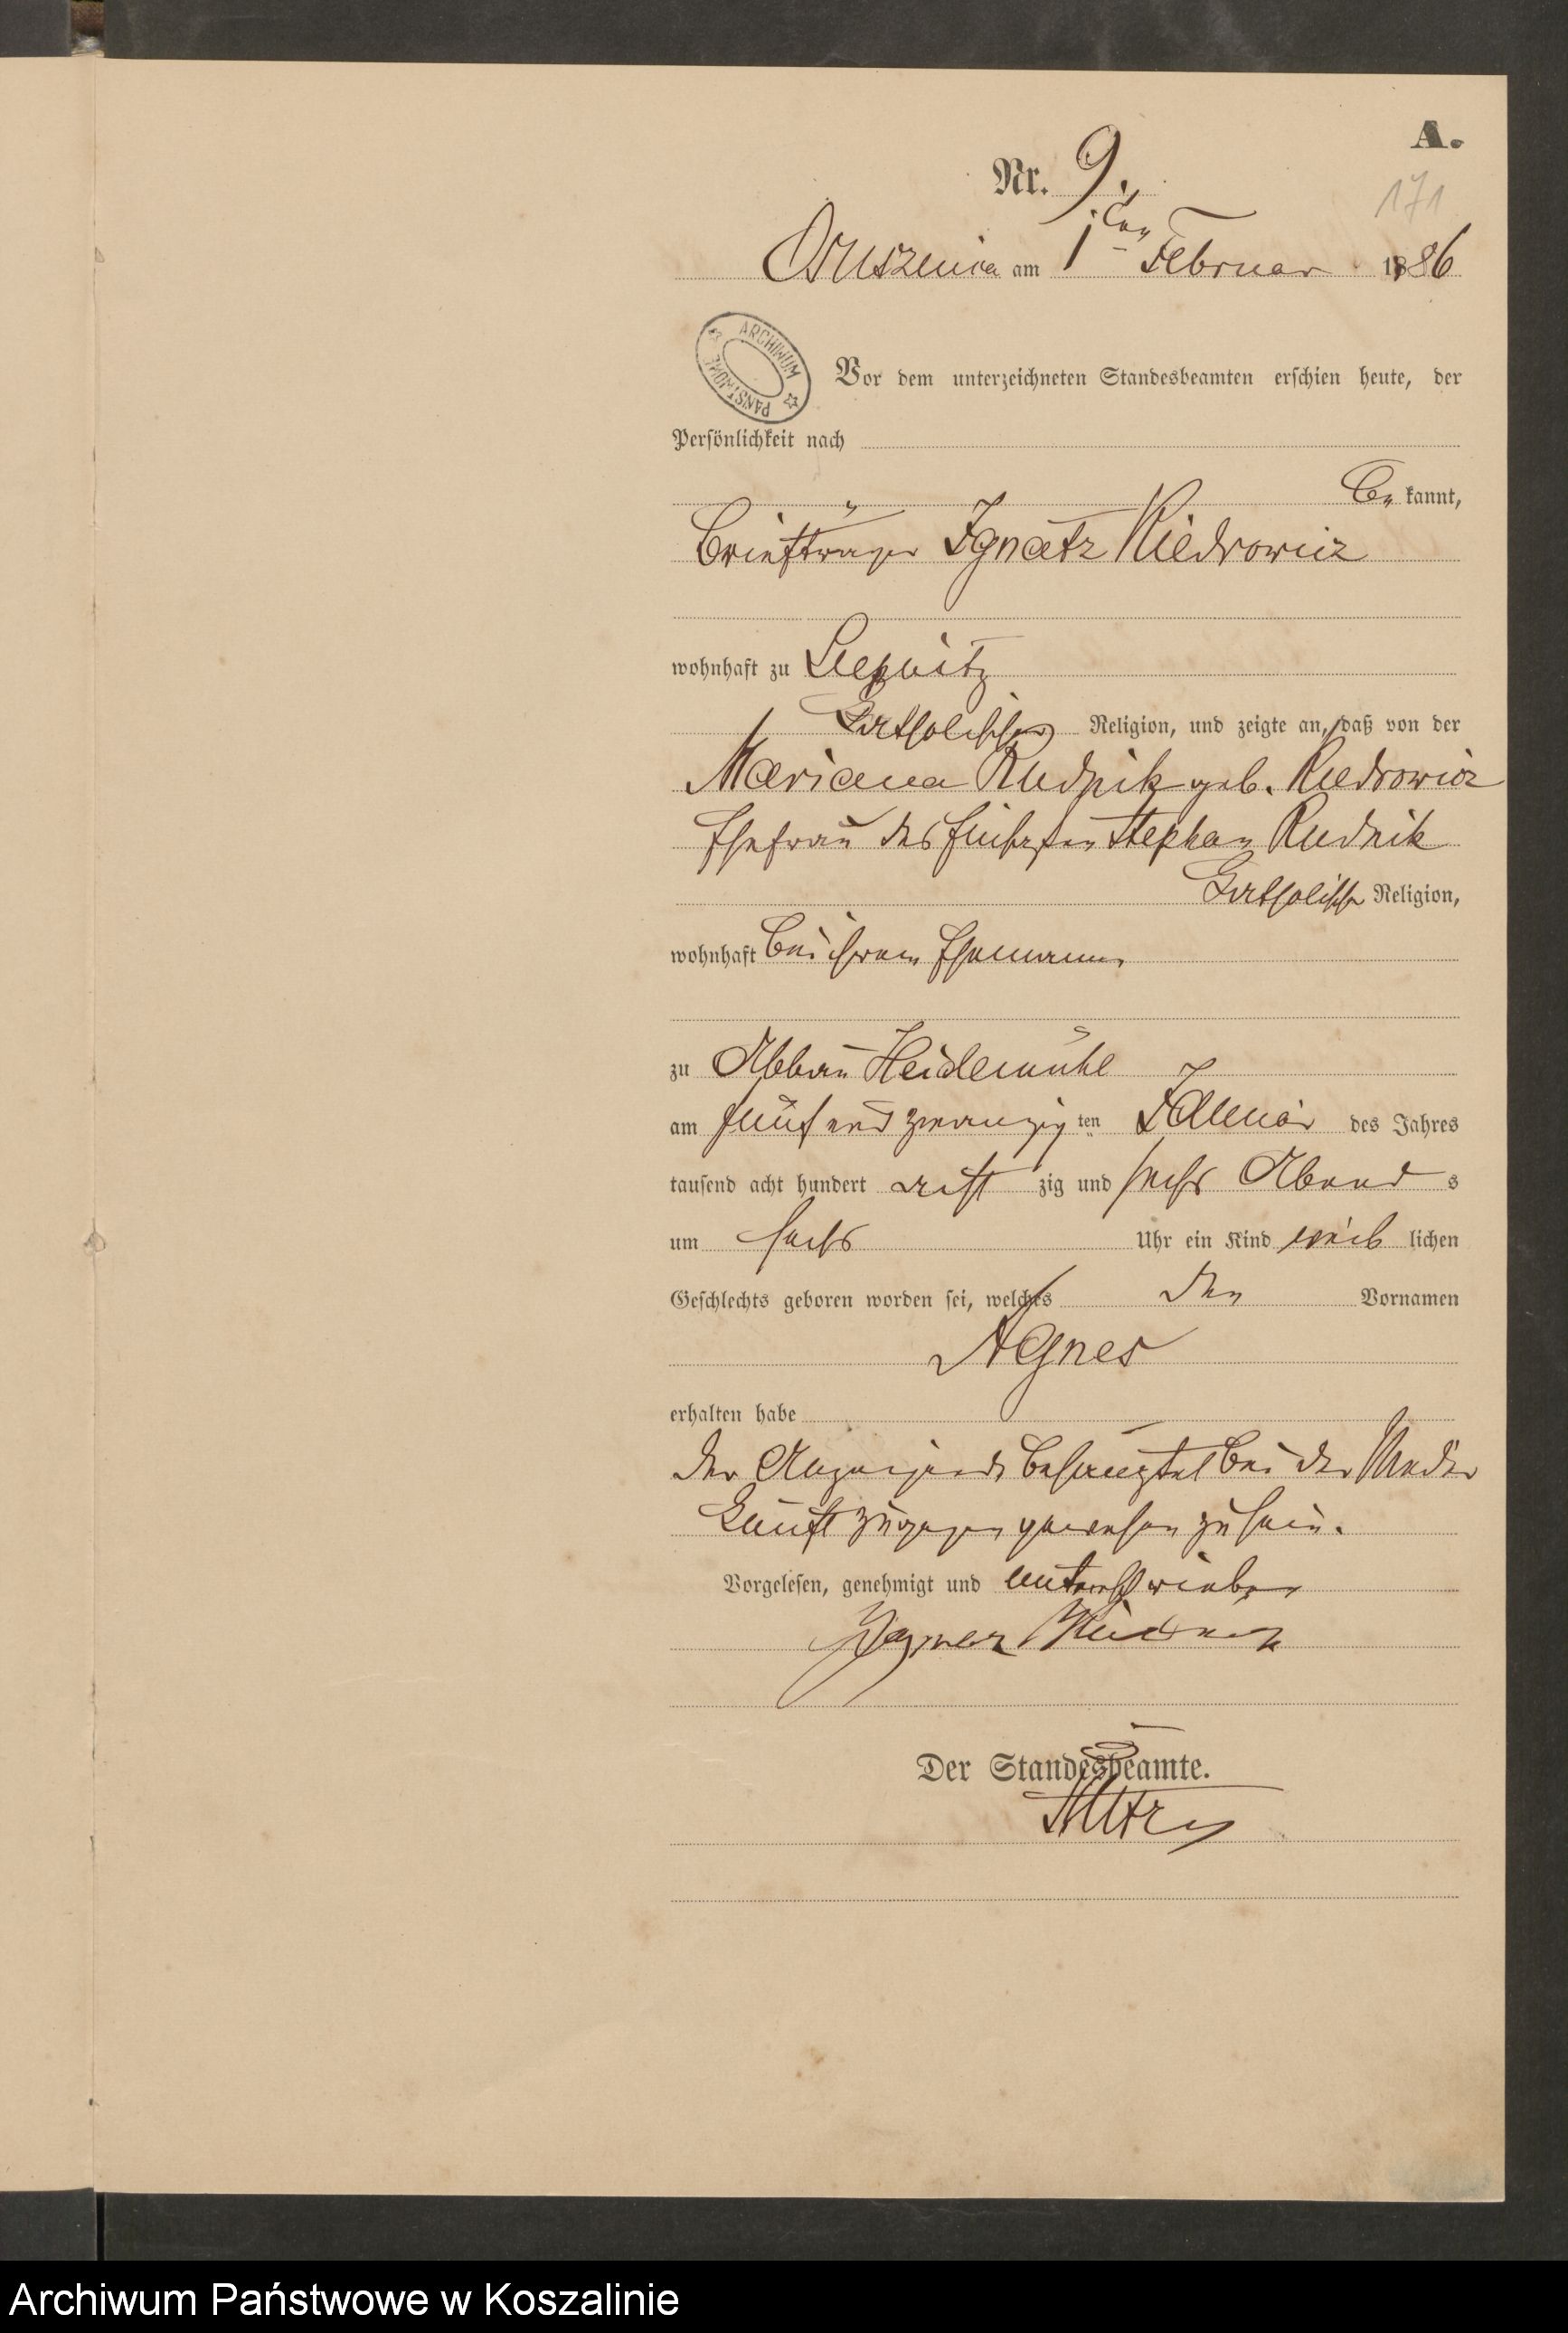 A.
Nr. 9.
171
am 1ten Februar 1886
ARCHIWUM PAŃSTWOWE
Vor dem unterzeichneten Standesbeamten erschien heute, der
Persönlichkeit nach
be kannt,
Briefträger Ignatz Kiedrowicz
wohnhaft zu Liepnitz
katholischer Religion, und zeigte an, daß von der
Mariana Rudnik geb. Kiedrowicz
Ehefrau des Stephan Rudnik
katholischer Religion,
wohnhaft bei ihrem Ehemann
zu Abbau Heidemühl
am fünf und zwanzig ten Januar des Jahres
tausend acht hundert acht zig und sechs Abend s
um sechs Uhr ein Kind weib lichen
Geschlechts geboren worden sei, welches den Vornamen
Agnes
erhalten habe
Der Anzeigende behauptet bei der Nieder
kunft zugegen gewesen zu sein.
Vorgelesen, genehmigt und unterschrieben
Der Standesbeamte.
Archiwum Państwowe w Koszalinie